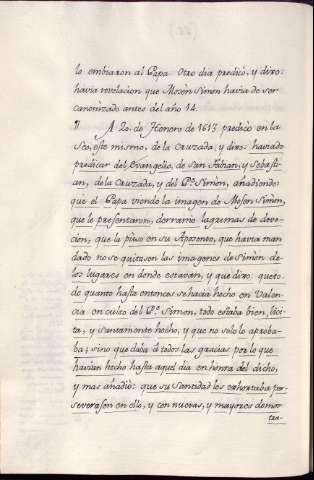 le embiaron al Papa. Otro dia predicó, y dixo:
havia revelacion que Mosén Simon havia de ser
canonizado antes del año 14.
A 20. de Henero de 1613. predicó en la
Seo, este mismo, de la Cruzada, y dixo: haviado
predicar del Evangelio, de San Fabian, y Sebasti
an, de la Cruzada, y del Pe. Simon, añadiendo:
que el Papa viendo la imagen de Mosen Simon,
que le presentaron, derramó lagrimas de devo-
cion, que la puso en su Aposento, que havia man
dado no se quitasen las imagenes de Simon de
los lugares en donde estavan, y que dixo: que to-
do quanto hasta entonces se havia hecho en Valen-
cia en culto del Pe. Simon, todo estaba bien, lici-
ta, y santamente hecho, y que no solo lo aproba-
ba; sino que daba á todos las gracias por lo que
havian hecho hasta aquel dia en honra del dicho,
y mas añadió: que su Santidad les exhortaba per
severasen en ello, y con nuevas, y mayores demos-
tra-